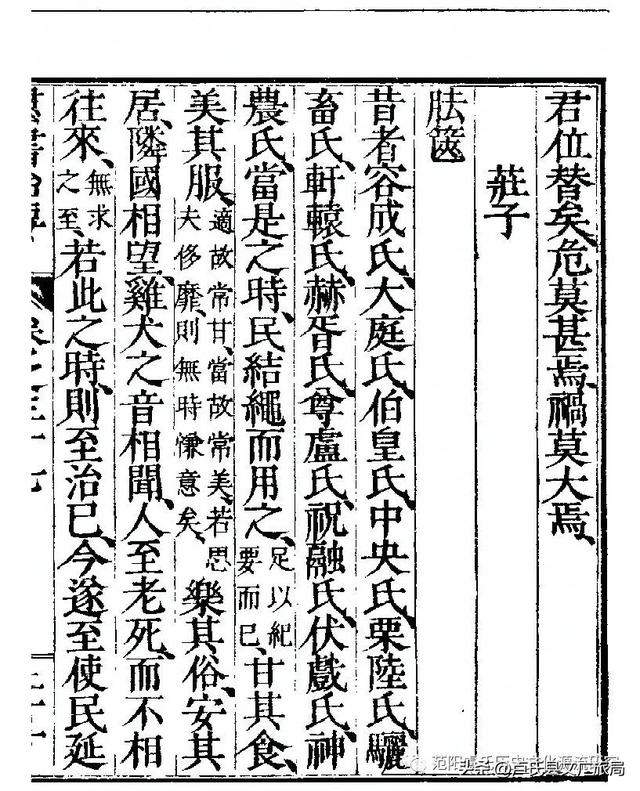 君位替矣危莫甚焉、禍莫大焉、
莊子
胠篋
昔者容成氏、大庭氏、伯皇氏、中央氏、栗陸氏、驪
畜氏、軒轅氏、赫胥氏、尊盧氏、祝融氏、伏戲氏、神
農氏、當是之時、民結繩而用之、足以紀要而已、甘其食、
美其服、適故常甘、當故常美、若思夫侈靡、則無時慊意矣、樂其俗、安其
居、隣國相望、雞犬之音相聞、人至老死、而不相
往來、無求之至、若此之時、則至治已、今遂至使民延